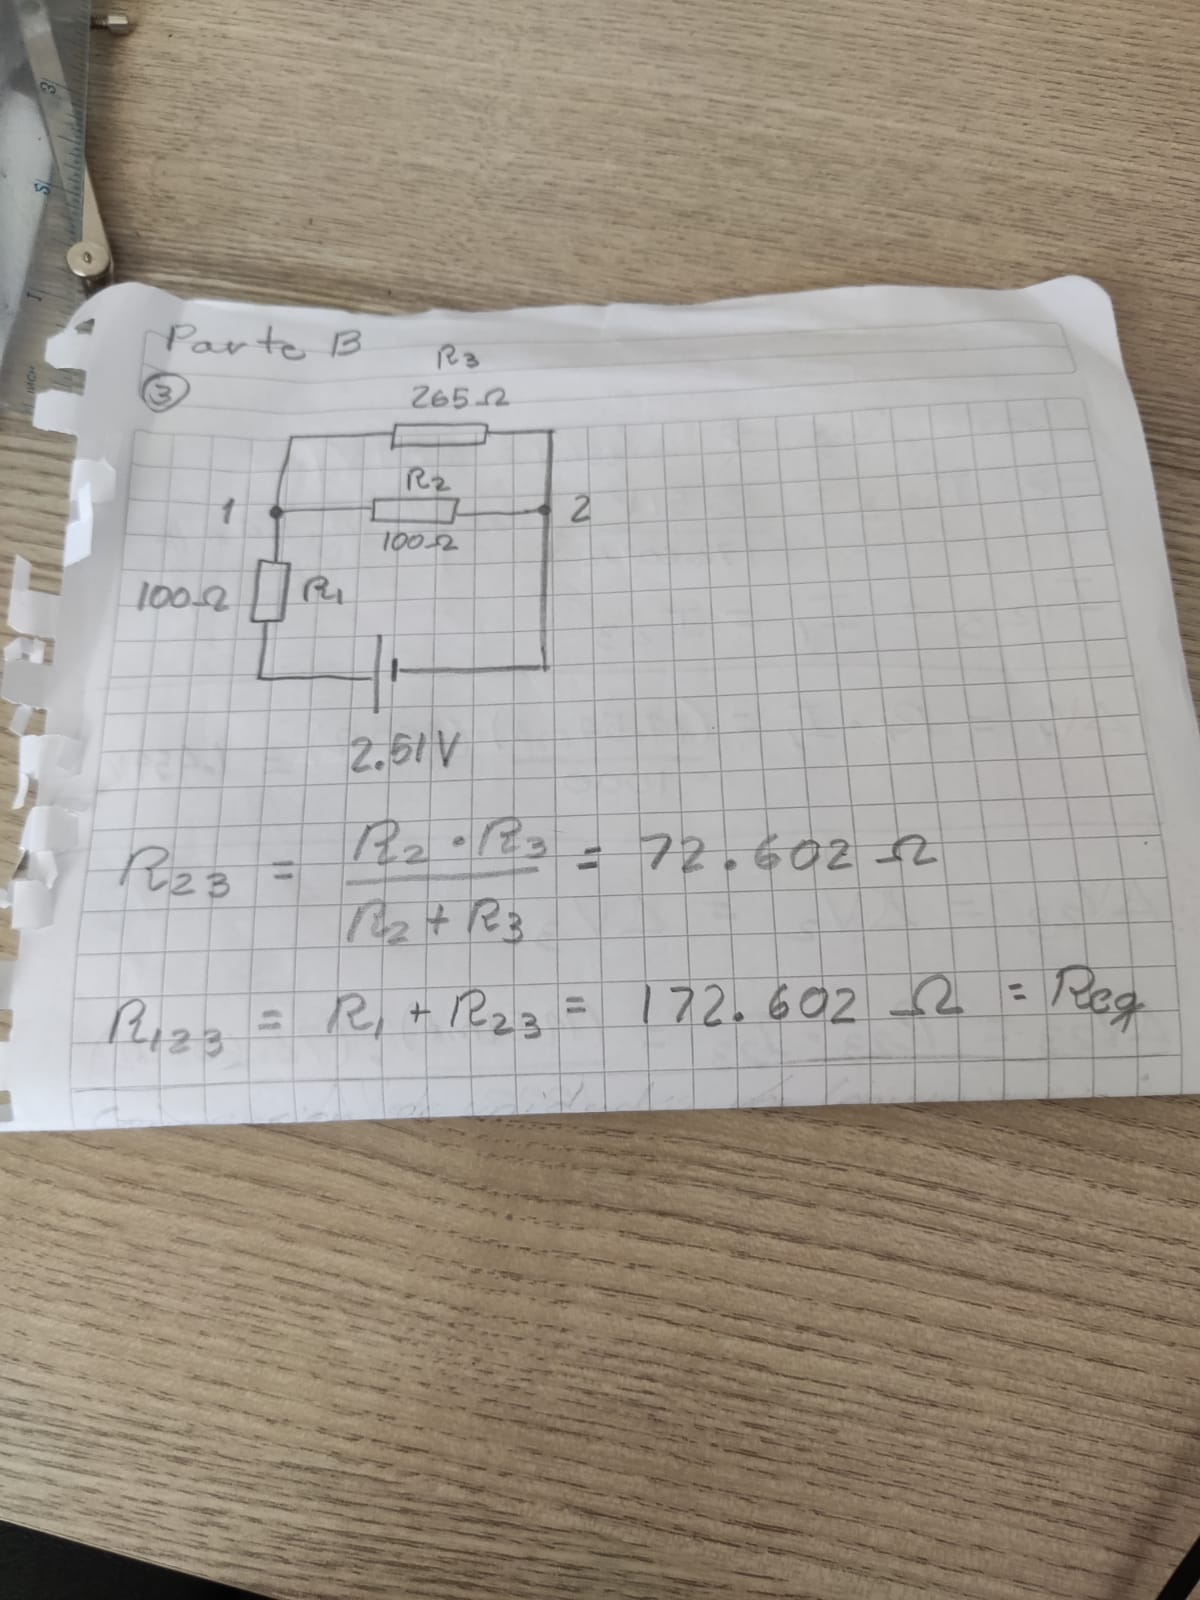 Parte B
③
R3
265Ω
R2
1
2
100Ω
100Ω
R1
2.51V
R23 = R2 · R3 / R2 + R3 = 72.602 Ω
R123 = R1 + R23 = 172.602 Ω = Req